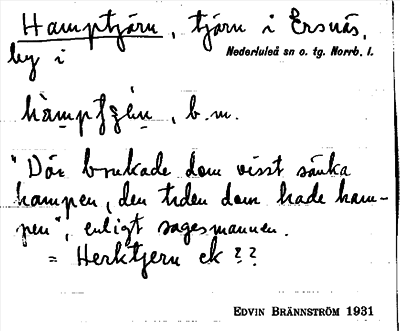 Hamptjärn, tjärn i Ersnäs,
by i Nederluleå sn o. tg. Norrb. l.
hampt̯ʒén, b. m.
"Där brukade dom visst sänka
hampen, den tiden dom hade ham-
pen", enligt sagesmannen.
= Herktjern ek ??
EDVIN BRÄNNSTRÖM 1931